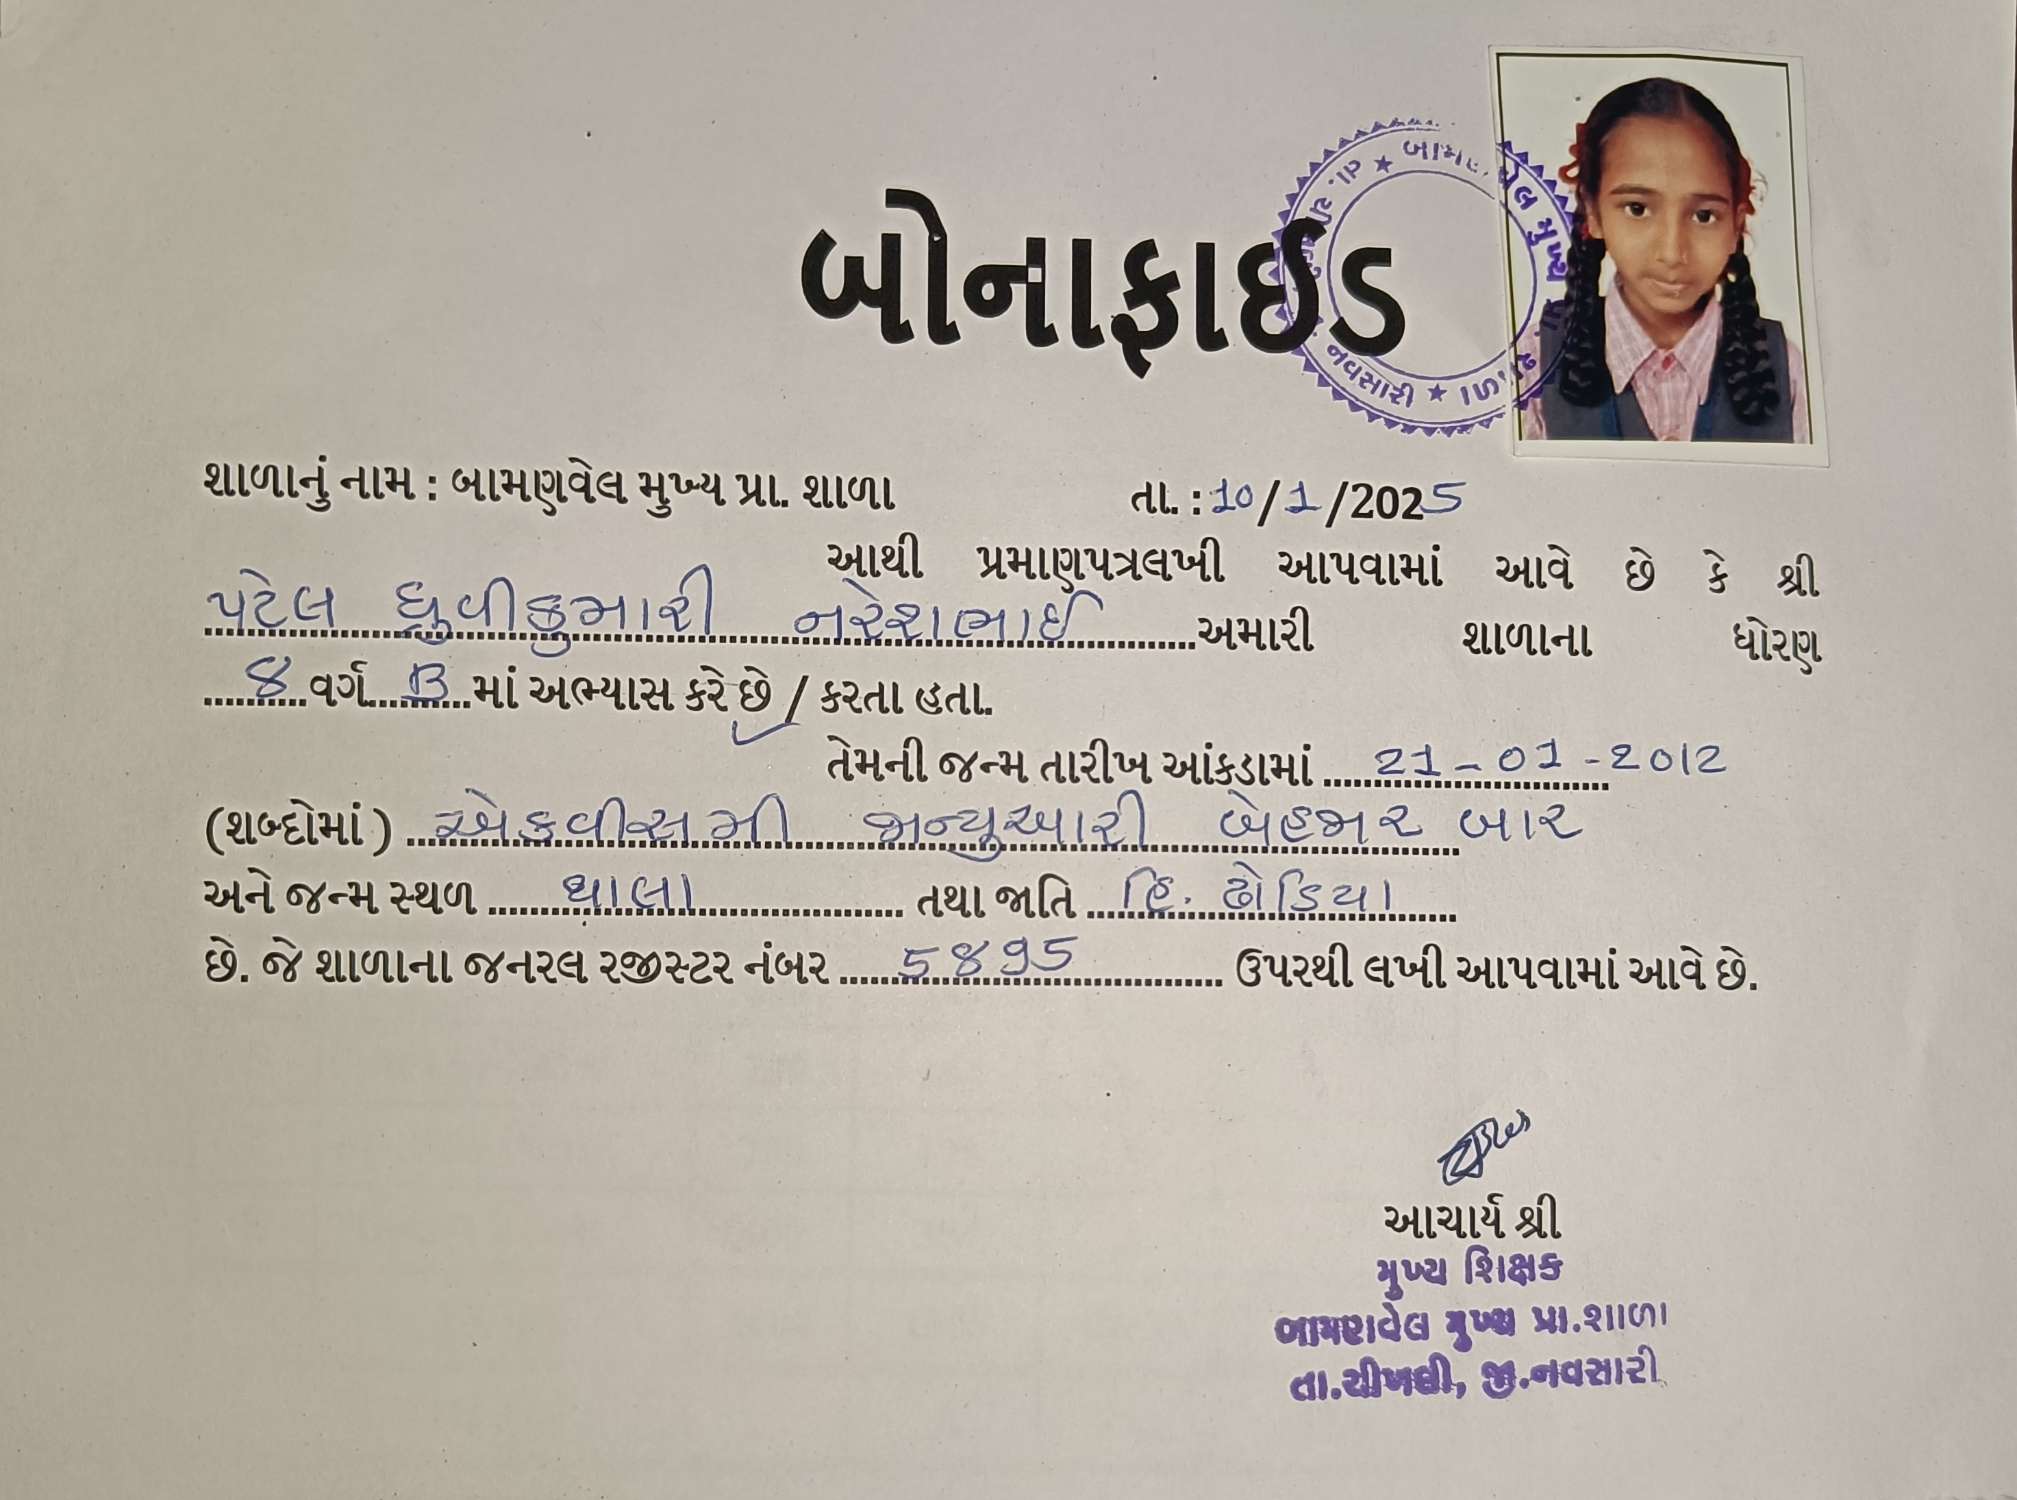 બોનાફાઈડ
તા. ચીખલી નવસારી ★ બામણવેલ મુખ્ય પ્રા. શાળા ★
શાળાનું નામ : બામણવેલ મુખ્ય પ્રા. શાળા તા. : 10/1/2025
આથી પ્રમાણપત્રલખી આપવામાં આવે છે કે શ્રી
પટેલ ધ્રુવીકુમારી નરેશભાઈ અમારી શાળાના ધોરણ
8 વર્ગ B માં અભ્યાસ કરે છે / કરતા હતા.
તેમની જન્મ તારીખ આંકડામાં 21-01-2012
(શબ્દોમાં) એકવીસમી જાન્યુઆરી બેહજાર બાર
અને જન્મ સ્થળ થાલા તથા જાતિ હિ. ઢોડિયા
છે. જે શાળાના જનરલ રજીસ્ટર નંબર 5895 ઉપરથી લખી આપવામાં આવે છે.
આચાર્ય શ્રી
મુખ્ય શિક્ષક
બામણવેલ મુખ્ય પ્રા.શાળા
તા.ચીખલી, જી.નવસારી